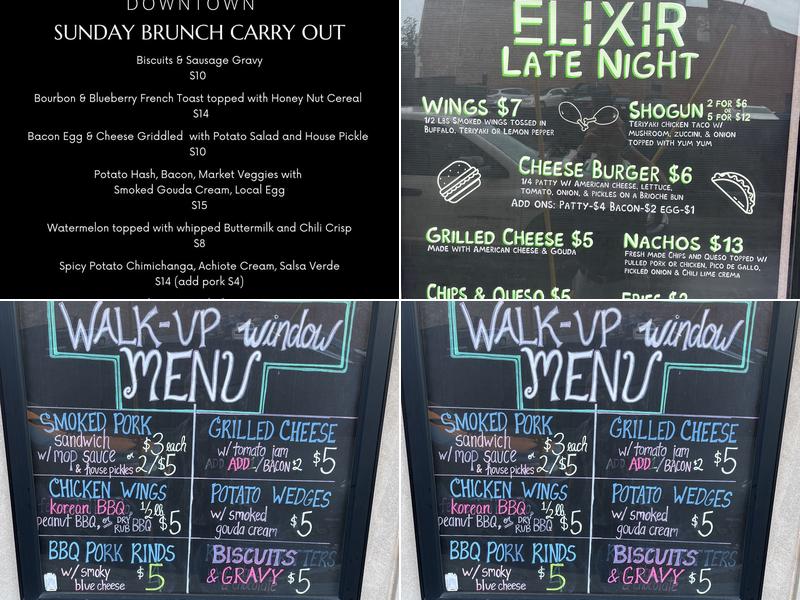 DOWNTOWN
SUNDAY BRUNCH CARRY OUT
Biscuits & Sausage Gravy
$10
Bourbon & Blueberry French Toast topped with Honey Nut Cereal
$14
Bacon Egg & Cheese Griddled with Potato Salad and House Pickle
$10
Potato Hash, Bacon, Market Veggies with
Smoked Gouda Cream, Local Egg
$15
Watermelon topped with whipped Buttermilk and Chili Crisp
$8
Spicy Potato Chimichanga, Achiote Cream, Salsa Verde
$14 (add pork $4)
ELIXIR
LATE NIGHT
WINGS $7
1/2 LBS SMOKED WINGS TOSSED IN
BUFFALO, TERIYAKI OR LEMON PEPPER
SHOGUN 2 FOR $6
OR
5 FOR $12
TERIYAKI CHICKEN TACO W/
MUSHROOM, ZUCCINI, & ONION
TOPPED WITH YUM YUM
CHEESE BURGER $6
1/4 PATTY W/ AMERICAN CHEESE, LETTUCE,
TOMATO, ONION, & PICKLES ON A BRIOCHE BUN
ADD ONS: PATTY-$4 BACON-$2 EGG-$1
GRILLED CHEESE $5
MADE WITH AMERICAN CHEESE & GOUDA
NACHOS $13
FRESH MADE CHIPS AND QUESO TOPPED W/
PULLED PORK OR CHICKEN, PICO DE GALLO,
PICKLED ONION & CHILI LIME CREMA
CHIPS & QUESO $5
FRIES $3
WALK-UP window
MENU
SMOKED PORK
sandwich
w/ mop sauce
& house pickles
$3 each
or 2/$5
GRILLED CHEESE
w/ tomato jam
ADD BACON $2
$5
CHICKEN WINGS
korean BBQ, 1/2 lb
peanut BBQ, or DRY RUB BBQ $5
POTATO WEDGES
w/ smoked
gouda cream $5
BBQ PORK RINDS
w/ smoky
blue cheese $5
BISCUITS
& GRAVY $5
WALK-UP window
MENU
SMOKED PORK
sandwich
w/ mop sauce
& house pickles
$3 each
or 2/$5
GRILLED CHEESE
w/ tomato jam
ADD BACON $2
$5
CHICKEN WINGS
korean BBQ, 1/2 lb
peanut BBQ, or DRY RUB BBQ $5
POTATO WEDGES
w/ smoked
gouda cream $5
BBQ PORK RINDS
w/ smoky
blue cheese $5
BISCUITS
& GRAVY $5